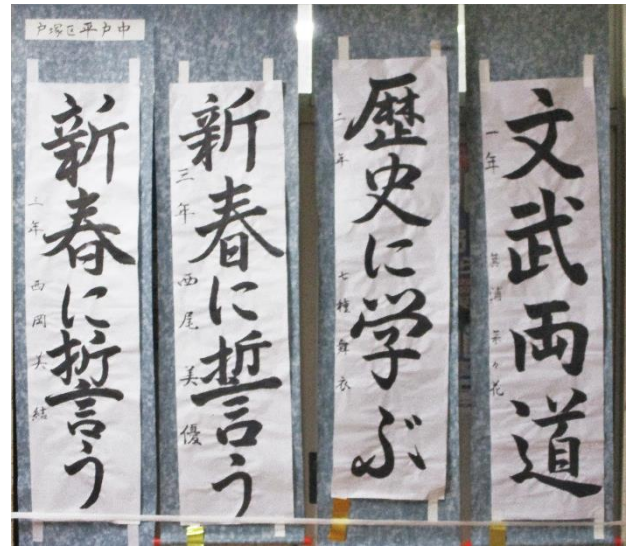 戸塚区平戸中
文武両道
一年
歴史に学ぶ
二年 七種舞衣
新春に誓う
三年 西尾美優
新春に誓う
三年 西岡美結